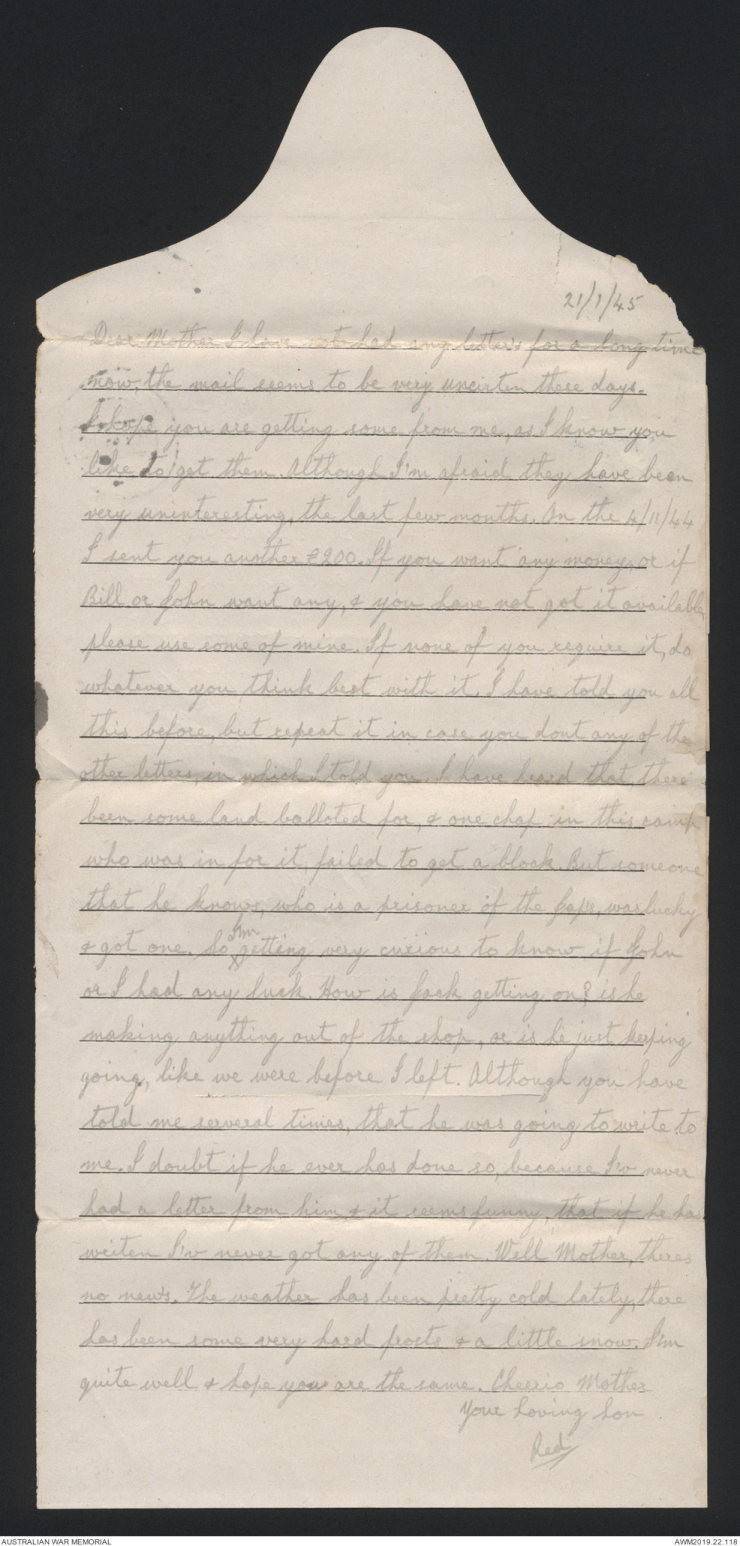 21/1/45
Dear Mother I have not had any letters for a long time
now, the mail seems to be very uncirten these days.
I hope you are getting some from me, as I know you
like to get them. Although I'm afraid they have been
very uninteresting, the last few months. On the 4/11/44
I sent you another £200. If you want any money, or if
Bill or John want any, & you have not got it available,
please use some of mine. If none of you require it, do
whatever you think best with it. I have told you all
this before, but repeat it in case you dont any of the
other letters, in which I told you. I have heard that, there
been some land balloted for, & one chap in this camp
who was in for it, failed to get a block. But someone
that he knows, who is a prisoner of the Japs, was lucky
& got one. So I'm getting very curious to know if John
or I had any luck. How is Jack getting on? is he
making anything out of the shop, or is he just keeping
going, like we were before I left. Although you have
told me serveral times, that he was going to write to
me. I doubt if he ever has done so, because I'v never
had a letter from him & it seems funny, that if he has
writen I'v never got any of them. Well Mother, theres
no news. The weather has been pretty cold lately, there
has been some very hard frosts & a little snow. I'm
quite well & hope you are the same. Cheerio Mother
Your Loving Son
Red
AUSTRALIAN WAR MEMORIAL
AWM2019.22.118